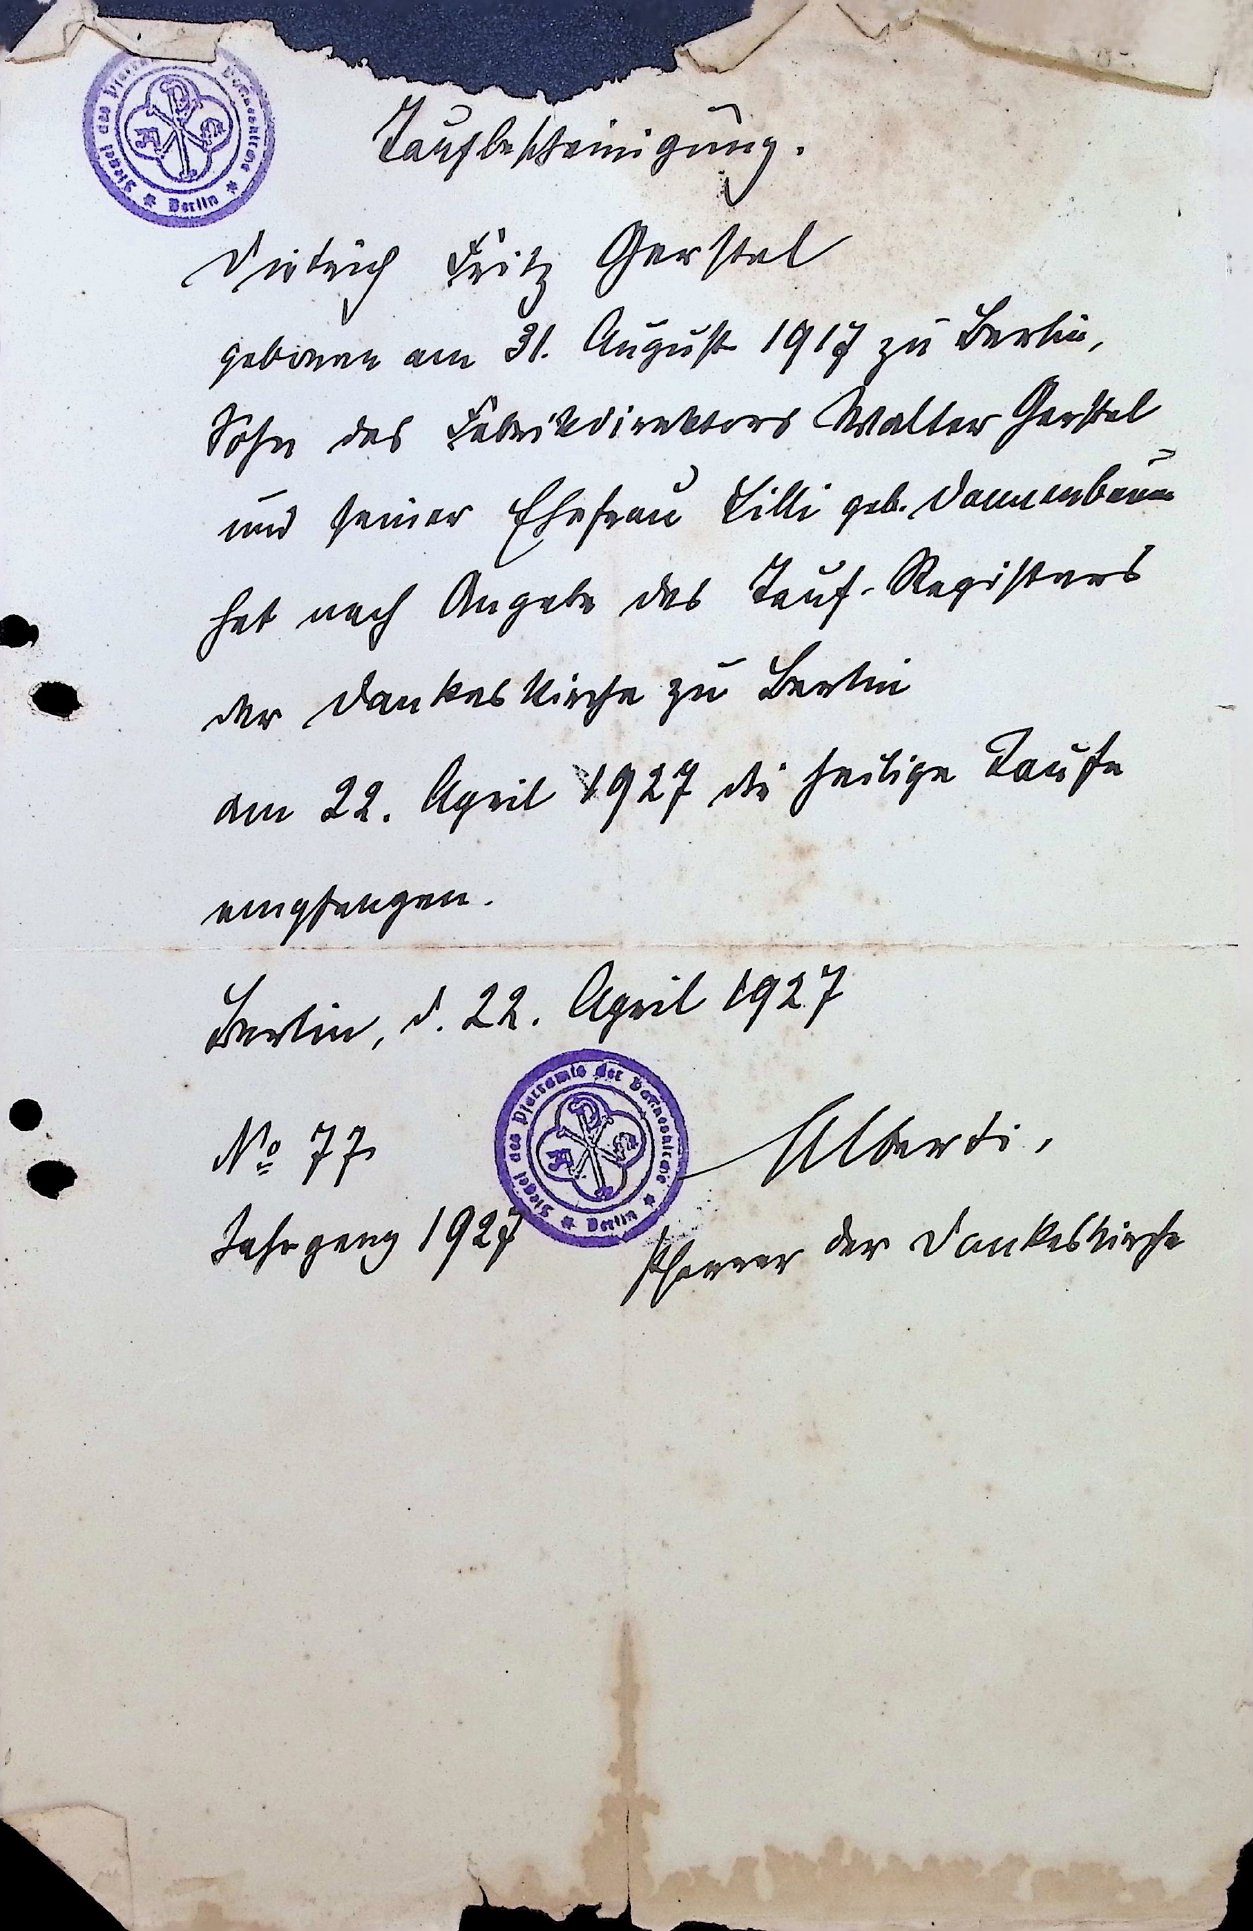 Taufbescheinigung.
Dietrich Fritz Gerstel
geboren am 31. August 1917 zu Berlin,
Sohn des Fabrikdirektors Walter Gerstel
und seiner Ehefrau Lilli geb. Dannenbaum
hat nach Angabe des Tauf-Registers
der Dankeskirche zu Berlin
am 22. April 1927 die heilige Taufe
empfangen.
Berlin, d. 22. April 1927
No 77.
Alberti,
Jahrgang 1927
Pfarrer der Dankeskirche
Siegel des Pfarramts der Dankeskirche * Berlin *